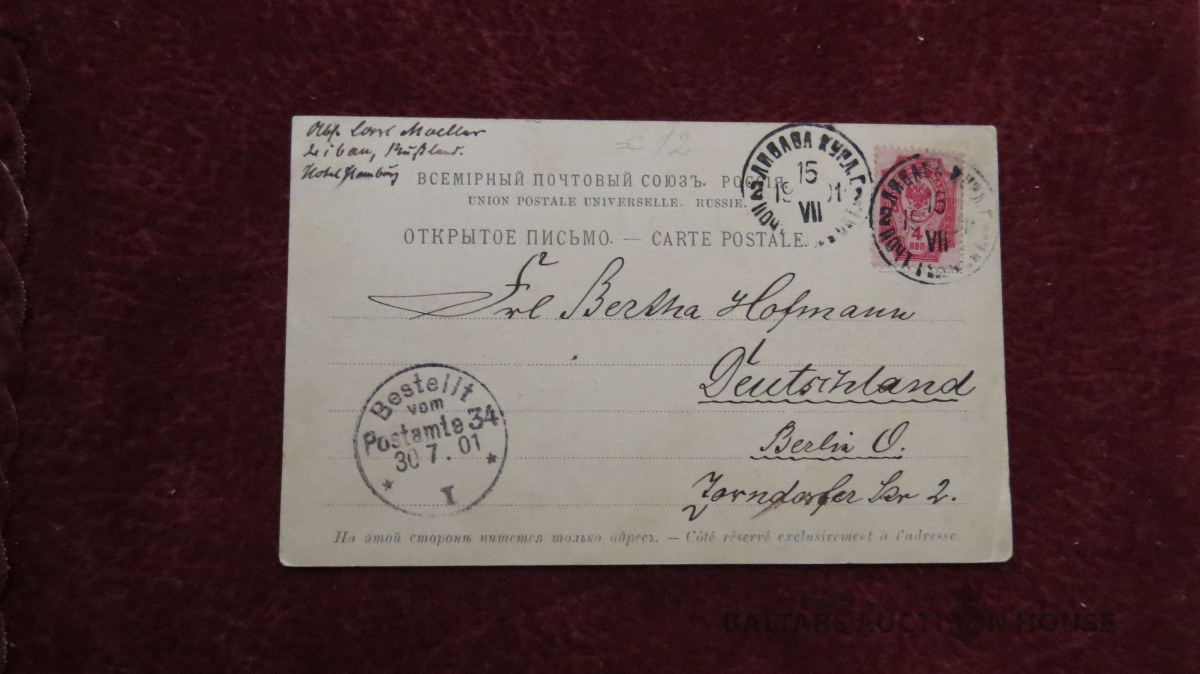 Abs. Carl Moeller
Libau, Rußland.
Hotel Hamburg
12
ВСЕМІРНЫЙ ПОЧТОВЫЙ СОЮЗЪ. РОССІЯ.
UNION POSTALE UNIVERSELLE. RUSSIE.
ОТКРЫТОЕ ПИСЬМО. — CARTE POSTALE.
ЛИБАВА КУРЛ. Г.
15
19 01
VII
4
КОП
VII
Frl Bertha Hofmann
Deutschland
Berlin O.
Zorndorfer Str 2.
Bestellt
vom
Postamte 34
30 7. 01
I
На этой сторонѣ пишется только адресъ. — Côté réservé exclusivement à l'adresse.
BALTARS AUCTION HOUSE